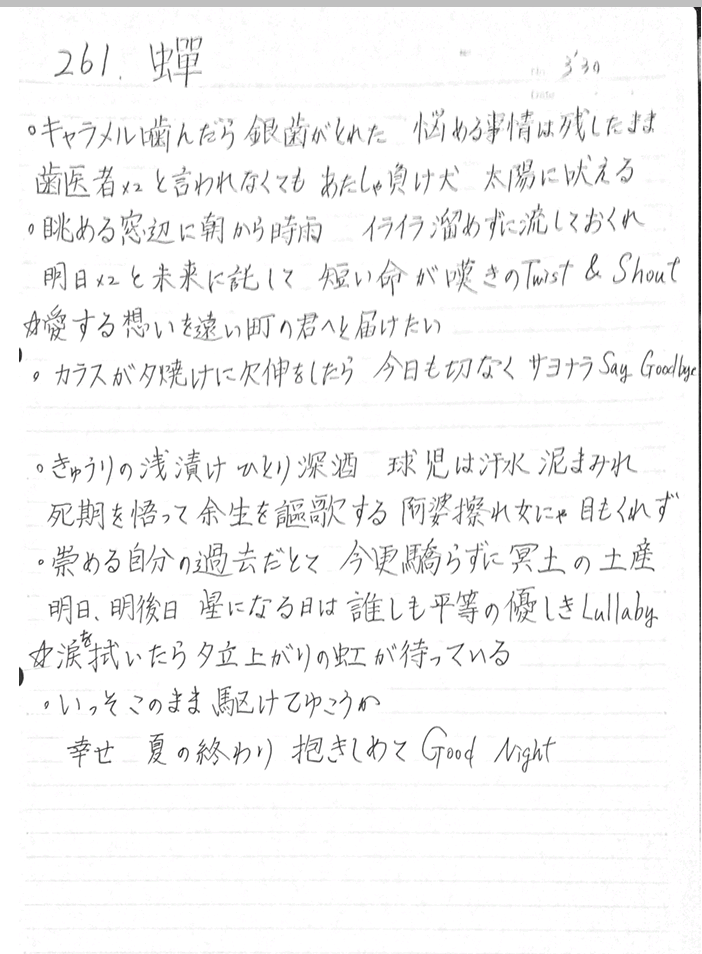 261. 蟬
3'30
○キャラメル噛んだら 銀歯がとれた 悩める事情は残したまま
歯医者×2と言われなくても あたしゃ負け犬 太陽に吠える
○眺める窓辺に朝から時雨 イライラ溜めずに流しておくれ
明日×2と未来に託して 短い命が嘆きのTwist & Shout
☆愛する想いを遠い町の君へと届けたい
○カラスが夕焼けに欠伸をしたら 今日も切なく サヨナラ Say Goodbye
○きゅうりの浅漬け ひとり深酒 球児は汗水 泥まみれ
死期を悟って余生を謳歌する 阿婆擦れ女にゃ 目もくれず
○崇める自分の過去だとて 今更驕らずに冥土の土産
明日、明後日 星になる日は 誰しも平等の優しきLullaby
☆涙を拭いたら夕立上がりの虹が待っている
○いっそこのまま駆けてゆこうか
幸せ 夏の終わり 抱きしめて Good Night